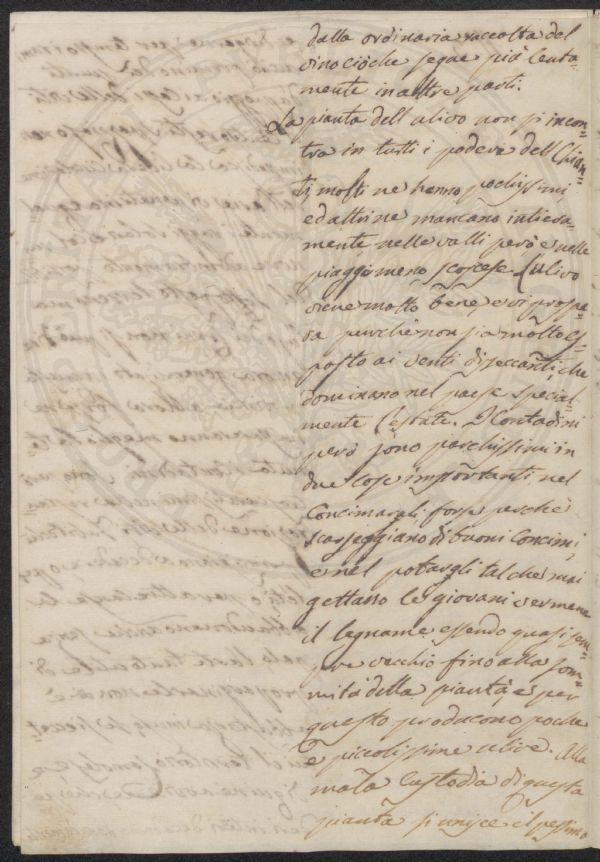 dalla ordinaria raccolta del
vino ciò che segue più lenta=
mente in altre parti.
La pianta dell'ulivo non si incon=
tra in tutti i poderi del Chian=
ti, molti ne hanno pochissimi,
ed altri ne mancano intiera=
mente, nelle valli però e nelle
piagge meno scoscese l'ulivo
viene molto bene, e vi prospe=
ra purchè non sia molto es=
posto ai venti disseccanti, che
dominano nel paese special=
mente l'estate. I Contadini
però sono parchissimi in
due cose importanti nel
Concimargli forse perchè
scarseggiano di buoni concimi,
e nel potargli talche mai
gettano le giovani vermene
il legname essendo quasi sem=
pre vecchio fino alla som=
mità della pianta, e per
questo producono poche
e piccolissime ulive. Alla
mala custodia di questa
pianta si unisce il pessimo